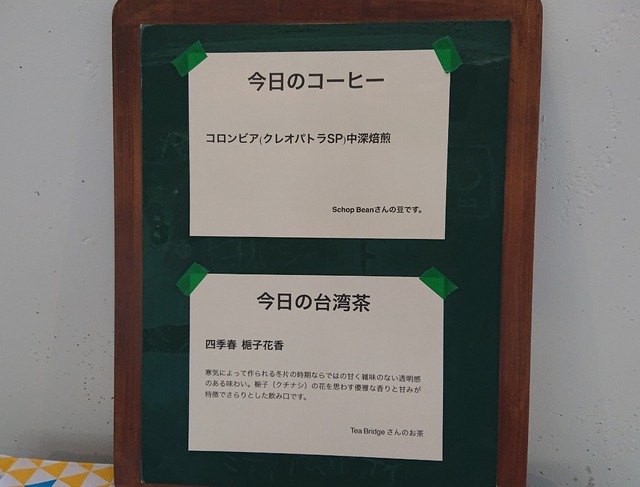 今日のコーヒー
コロンビア(クレオパトラSP)中深焙煎
Schop Beanさんの豆です。
今日の台湾茶
四季春 梔子花香
寒気によって作られる冬片の時期ならではの甘く雑味のない透明感
のある味わい。梔子（クチナシ）の花を思わす優雅な香りと甘みが
特徴でさらりとした飲み口です。
Tea Bridge さんのお茶